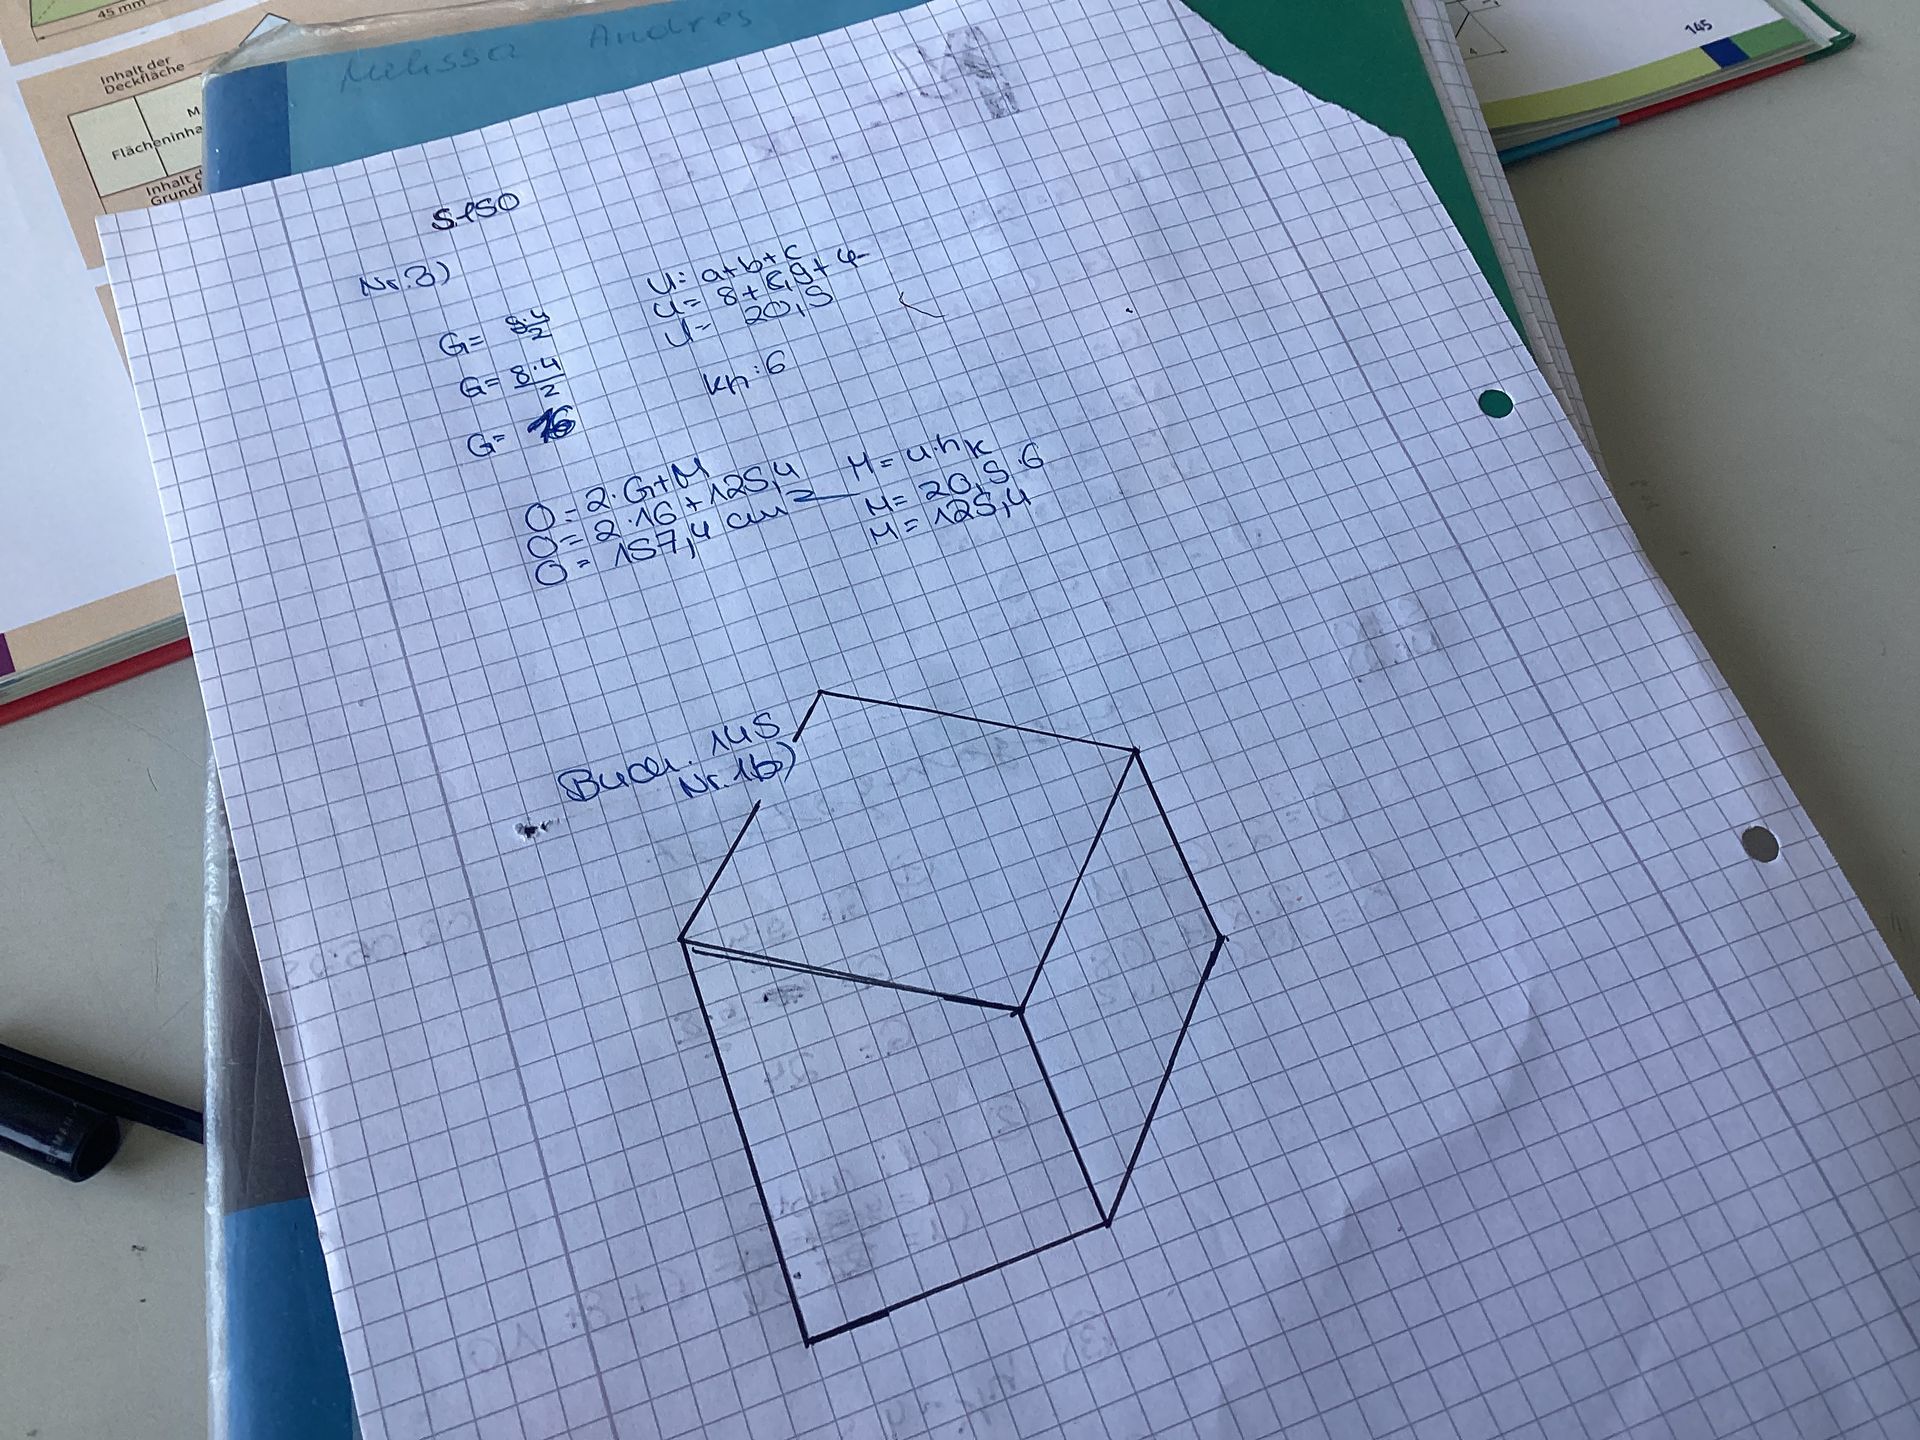 45 mm
Inhalt der
Deckfläche
M
Flächeninha
Inhalt d
Grundf
Melissa Andres
145
S.150
Nr. 3)
G= 8·4/2
G= 8·4/2
G= 16
U= a+b+c
U= 8+8,9+4
U= 20,9
kh: 6
O= 2·G+M
O= 2·16+125,4
O= 157,4 cm²
M= u·hk
M= 20,9·6
M= 125,4
Buch. 145
Nr. 1b)